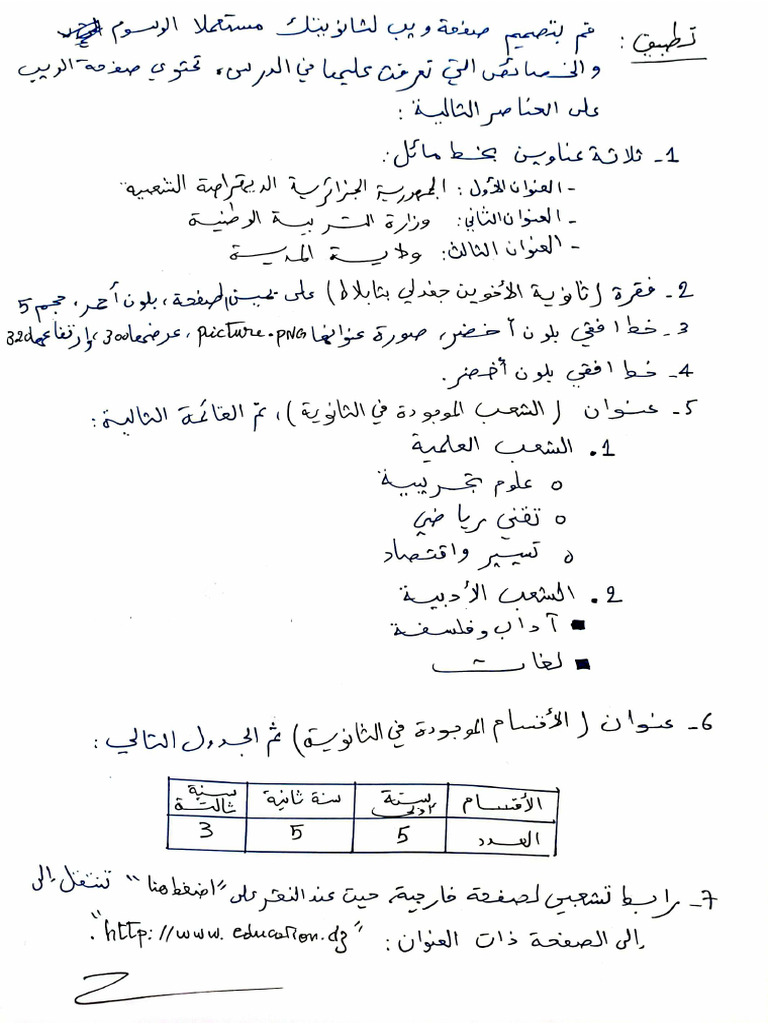 تطبيق: قم بتصميم صفحة ويب لثانويتك مستعملا الوسوم
والخصائص التي تعرفت عليها في الدرس، تحتوي صفحة الويب
على العناصر التالية:
1- ثلاثة عناوين بخط مائل:
- العنوان الأول: الجمهورية الجزائرية الديمقراطية الشعبية
- العنوان الثاني: وزارة التربية الوطنية
- العنوان الثالث: ولاية المدية
2- فقرة (ثانوية الأخوين جغدلي بثابلاط) على يمين الصفحة، بلون أحمر، حجم 5
3- خط افقي بلون أخضر، صورة عنوانها picture.PNG، عرضها 300، إرتفاعها 320
4- خط افقي بلون أخضر.
5- عنوان (الشعب الموجودة في الثانوية)، ثم القائمة التالية:
1. الشعب العلمية
o علوم تجريبية
o تقني رياضي
o تسيير واقتصاد
2. الشعب الأدبية
▪ آداب وفلسفة
▪ لغات
6- عنوان (الأقسام الموجودة في الثانوية) ثم الجدول التالي:
الأقسام سنة أولى سنة ثانية سنة ثالثة
العدد 5 5 3
7- رابط تشعبي لصفحة خارجية، حيث عند النقر على "اضغط هنا" تنتقل إلى
إلى الصفحة ذات العنوان: "http://www.education.dz".